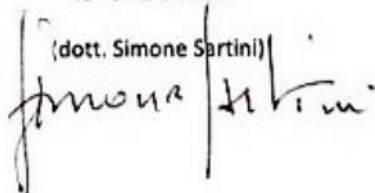 (dott. Simone Sartini)
Simone Sartini